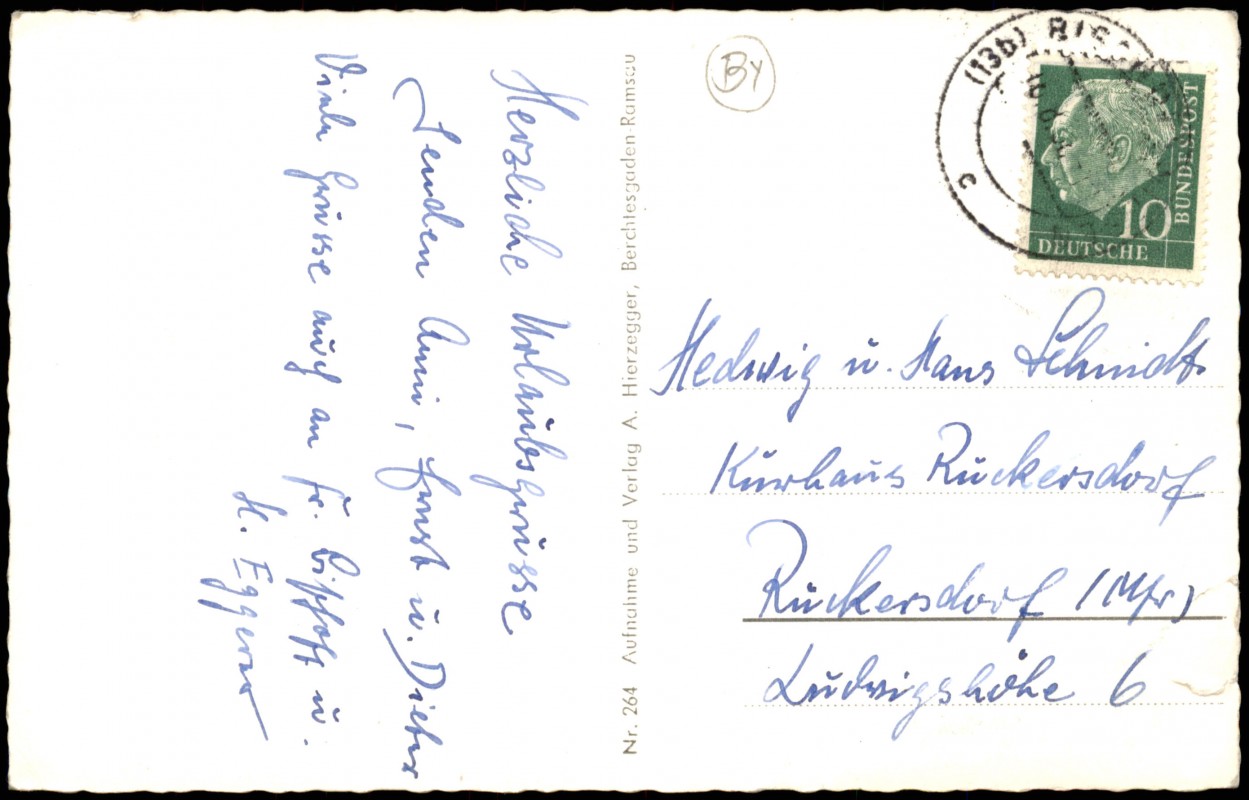 Herzliche Urlaubsgrüsse
senden Anni, Ernst u. Dieter
Viele Grüsse auch an Fr. Bischoff u.
H. Eggerer
Nr. 264 Aufnahme und Verlag A. Hierzegger, Berchtesgaden-Ramsau
BY
(13b) BISC
c
10
DEUTSCHE
BUNDESPOST
Hedwig u. Hans Schmidt
Kurhaus Rückersdorf
Rückersdorf / Mfr )
Ludwigshöhe 6